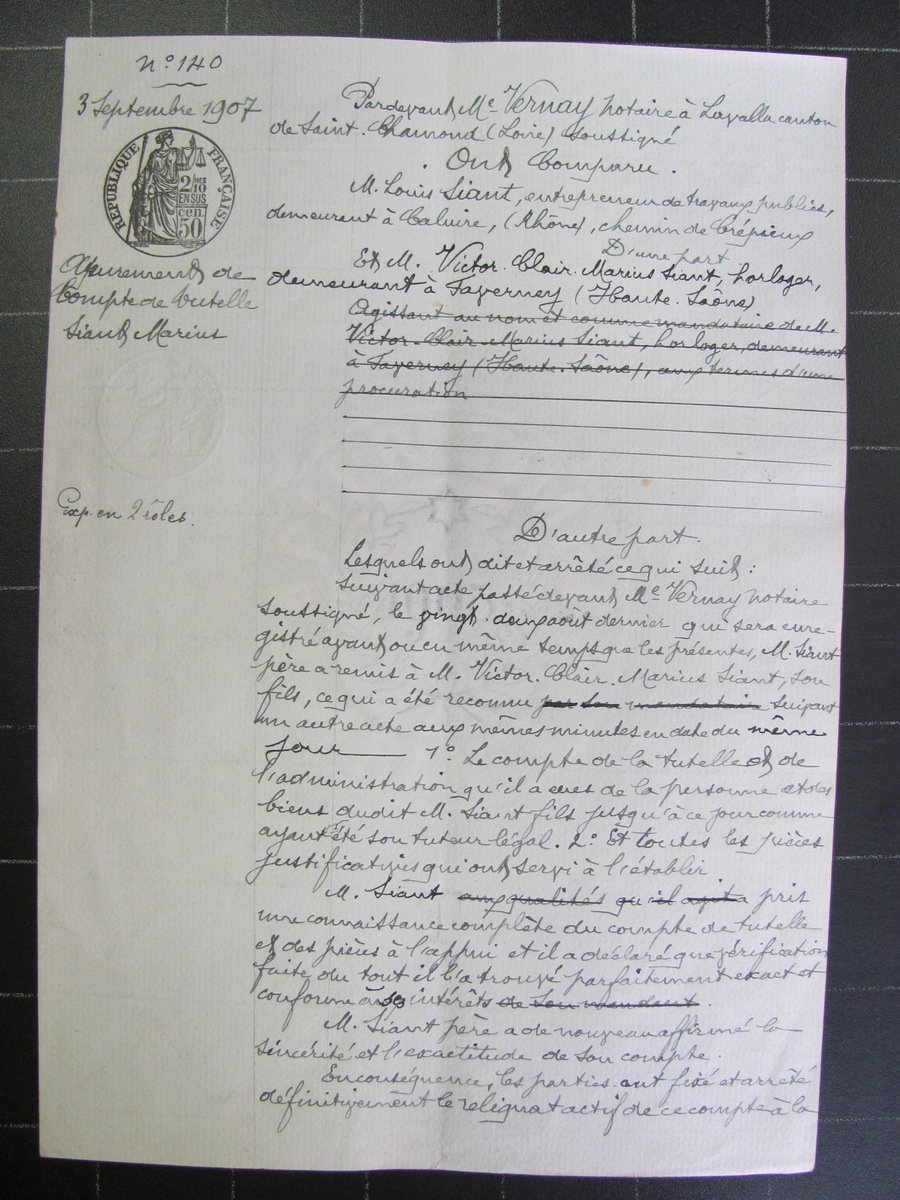 N° 140
3 Septembre 1907
RÉPUBLIQUE FRANÇAISE
2/10
EN SUS
50 cen.
Apurement de
Compte de tutelle
Siant Marius
Exp. en 2 rôles.
Pardevant Me Vernay notaire à Lavalla canton
de Saint-Chamond (Loire) soussigné
Ont Comparu.
M. Louis Siant, entrepreneur de travaux publics,
demeurant à Caluire, (Rhône), chemin de Crépieux
D'une part
Et M. Victor-Clair-Marius Siant, horloger,
demeurant à Faverney (Haute-Saône)
Agissant au nom et comme mandataire de M.
Victor-Clair-Marius Siant, horloger, demeurant
à Faverney (Haute-Saône), aux termes d'une
procuration
D'autre part.
Lesquels ont dit et arrêté ce qui suit :
Suivant acte passé devant Me Vernay notaire
soussigné, le vingt-deux août dernier qui sera enre-
gistré avant ou en même temps que les présentes, M. Siant
père a remis à M. Victor-Clair-Marius Siant, son
fils, ce qui a été reconnu par son mandataire suivant
un autre acte aux mêmes minutes en date du même
jour 1° Le compte de la tutelle et de
l'administration qu'il a eues de la personne et des
biens dudit M. Siant fils jusqu'à ce jour comme
ayant été son tuteur légal. 2° Et toutes les pièces
justificatives qui ont servi à l'établir
M. Siant aux qualités qu'il agit a pris
une connaissance complète du compte de tutelle
et des pièces à l'appui et il a déclaré que vérification
faite du tout il l'a trouvé parfaitement exact et
conforme à ses intérêts de son mandant.
M. Siant père a de nouveau affirmé la
sincérité et l'exactitude de son compte.
En conséquence, les parties ont fixé et arrêté
définitivement le reliquat actif de ce compte à la